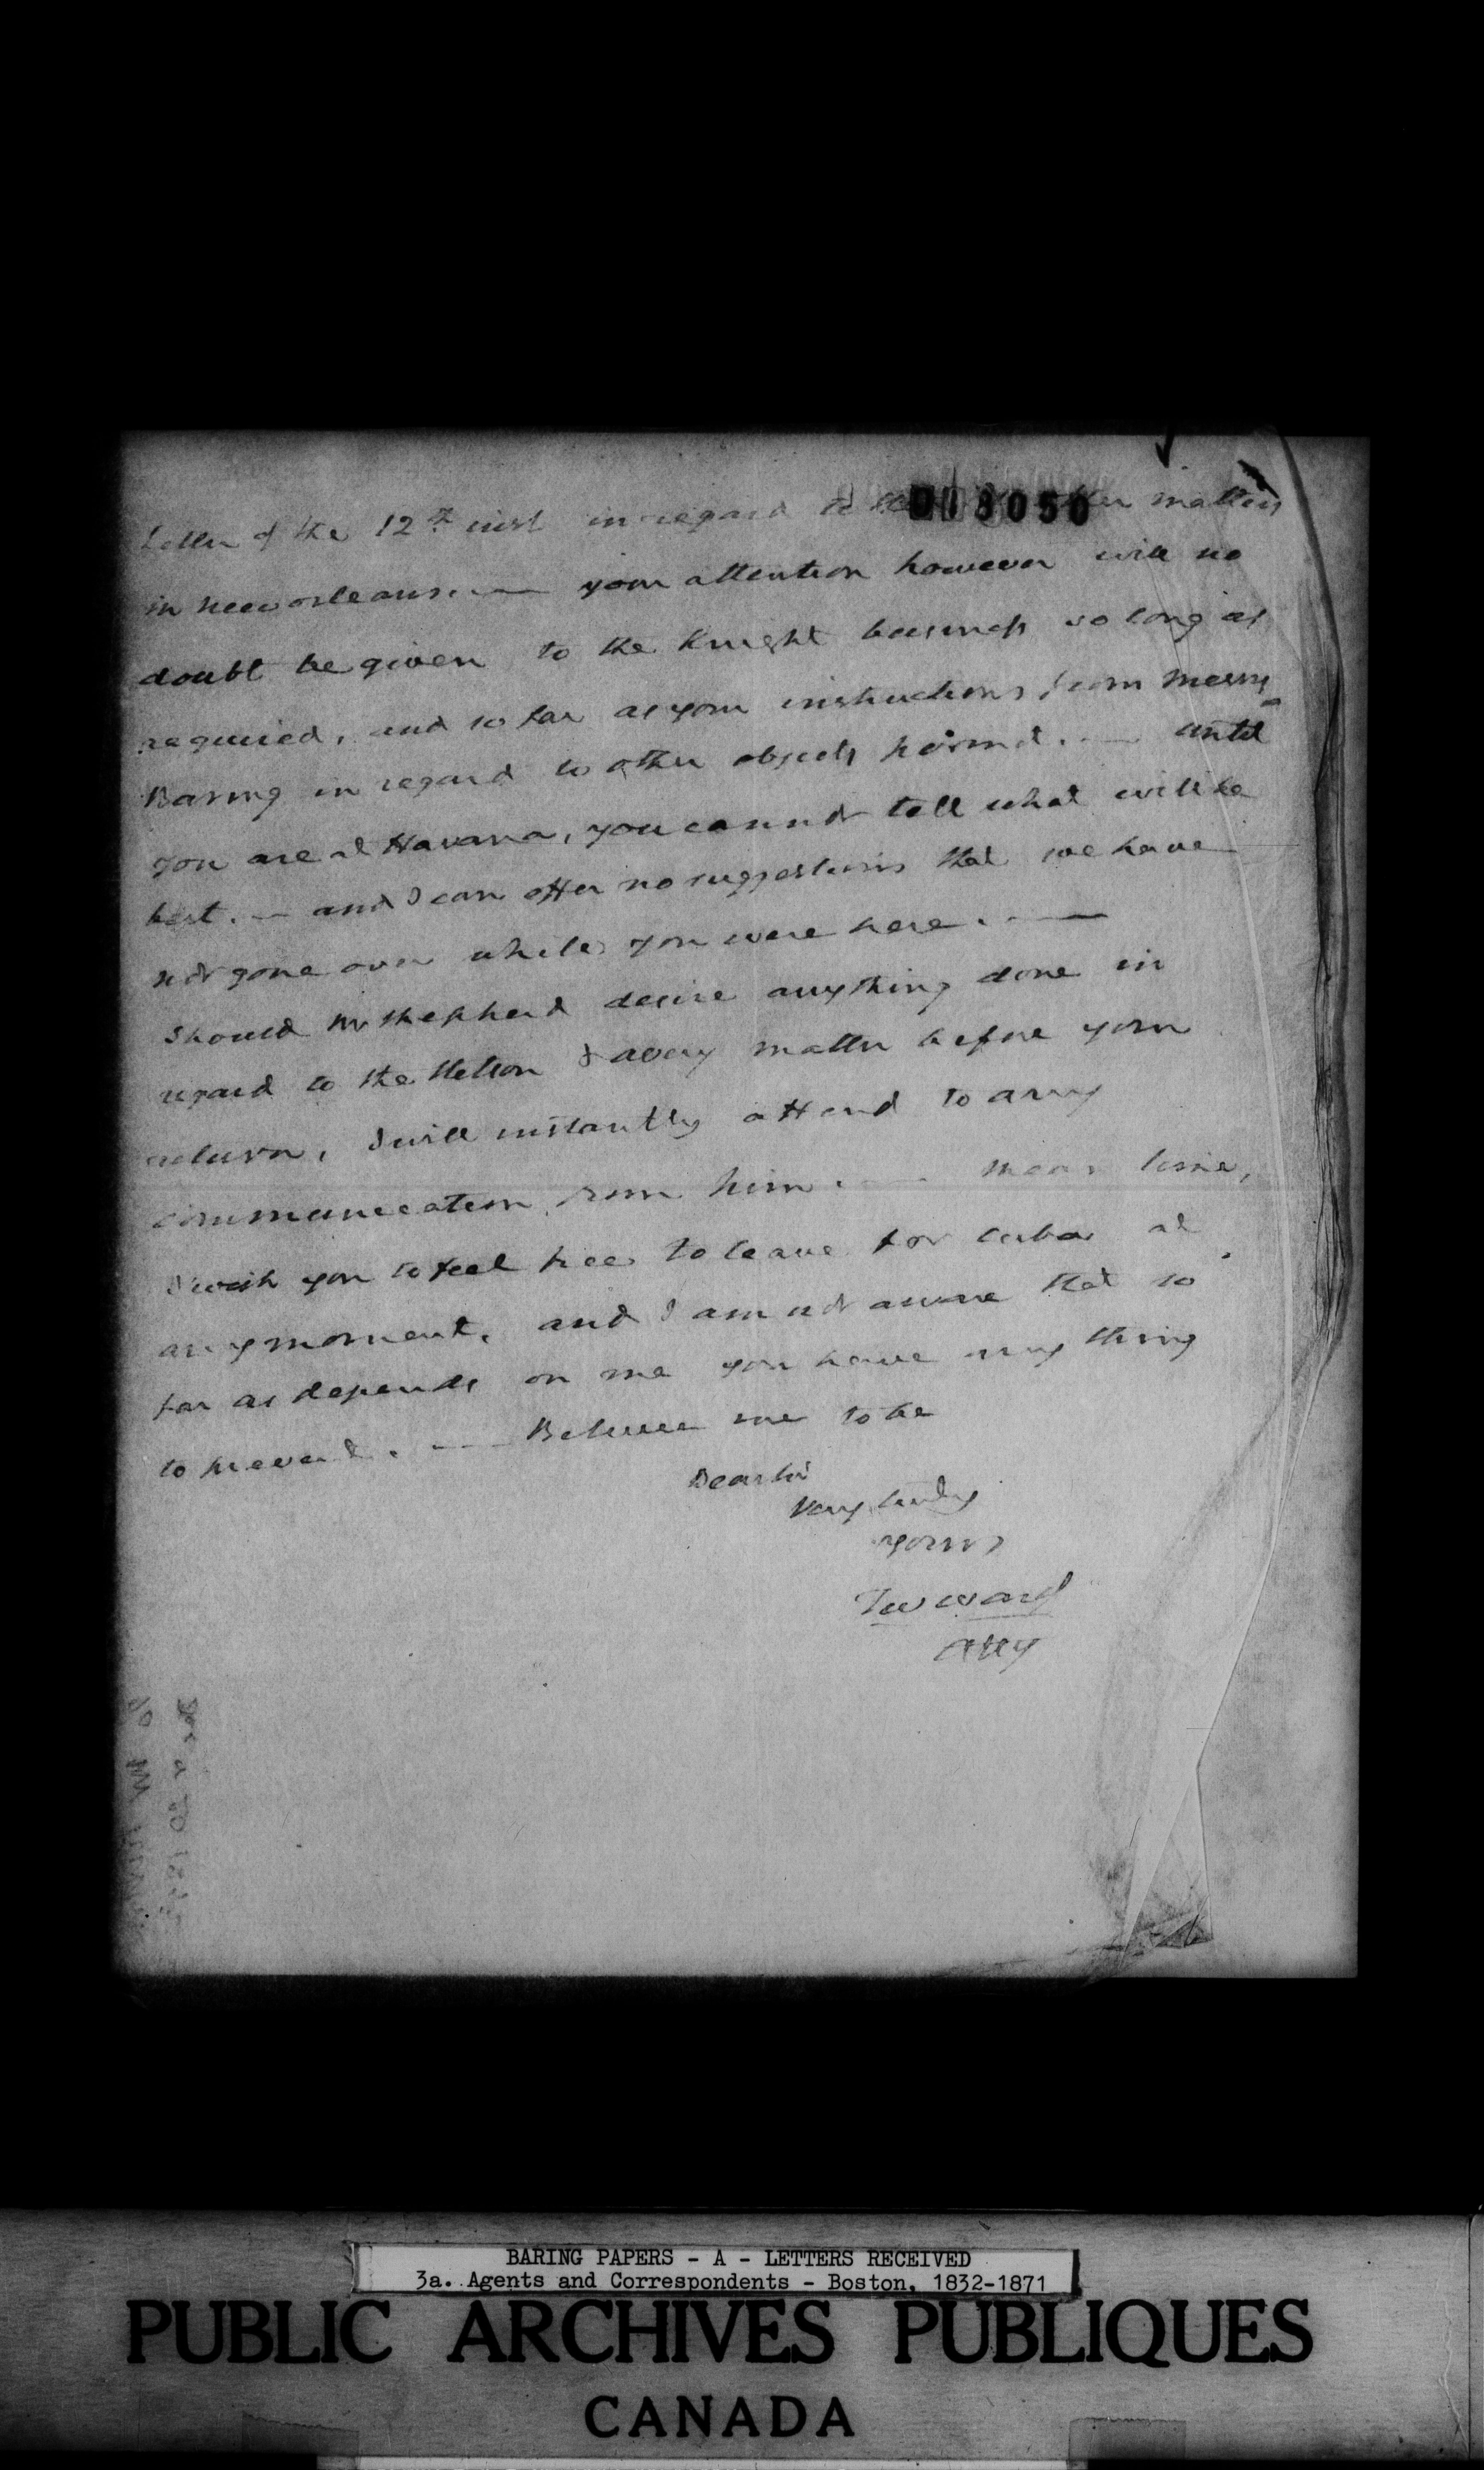 013050
Letter of the 12th inst in regard to other matters
in New orleans. — your attention however will no
doubt be given to the Knight business so long as
required, and so far as your instructions from Messrs
Baring in regard to other objects permit. — until
you are at Havana, you cannot tell what will be
best. — and I can offer no suggestions that we have
not gone over while you were here. —
Should Mr Shepherd desire anything done in
regard to the Stetson & Avery matter before your
return, I will instantly attend to any
communication from him. — Mean time,
I wish you to feel free to leave for Cuba at
any moment. and I am not aware that so
far as depends on me you have any thing
to prevent. — Believe me to be
Dear Sir
Very truly
yours
TWWard
Atty
BARING PAPERS - A - LETTERS RECEIVED
3a. Agents and Correspondents - Boston, 1832-1871
PUBLIC ARCHIVES PUBLIQUES
CANADA